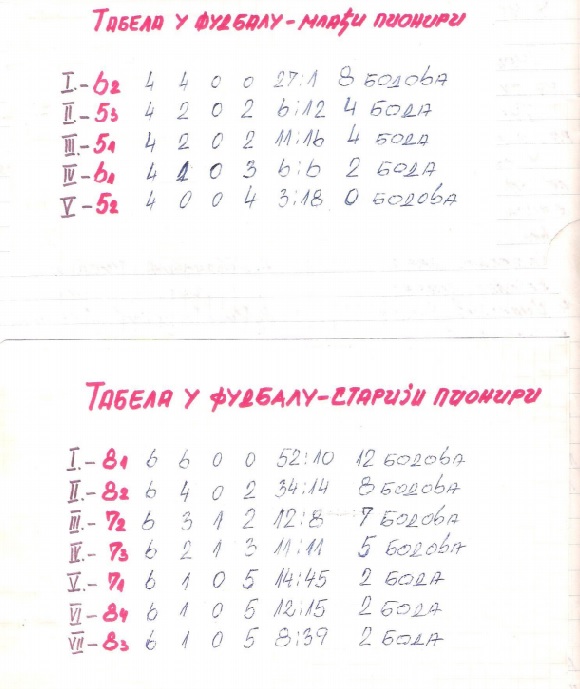 ТАБЕЛА У ФУДБАЛУ-МЛАЂИ ПИОНИРИ
I.-62 4 4 0 0 27:1 8 БОДОВА
II-53 4 2 0 2 6:12 4 БОДА
III.-51 4 2 0 2 11:16 4 БОДА
IV-61 4 1 0 3 6:6 2 БОДА
V-52 4 0 0 4 3:18 0 БОДОВА
ТАБЕЛА У ФУДБАЛУ-СТАРИЈИ ПИОНИРИ
I.-81 6 6 0 0 52:10 12 БОДОВА
II.-82 6 4 0 2 34:14 8 БОДОВА
III.-72 6 3 1 2 12:8 7 БОДОВА
IV.-73 6 2 1 3 11:11 5 БОДОВА
V.-71 6 1 0 5 14:45 2 БОДА
VI-84 6 1 0 5 12:15 2 БОДА
VII-83 6 1 0 5 8:39 2 БОДА